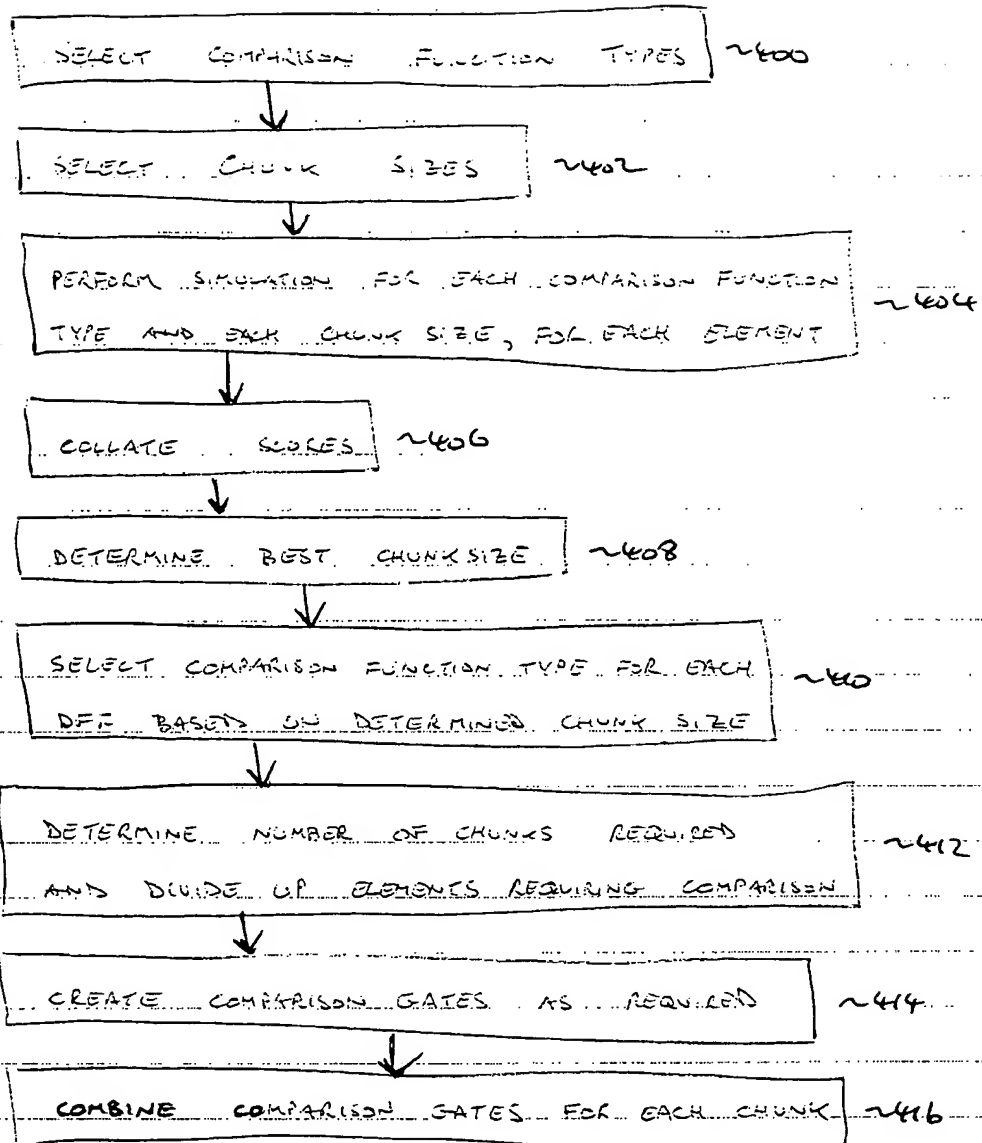 SELECT COMPARISON FUNCTION TYPES ~400
SELECT CHUNK SIZES ~402
PERFORM SIMULATION FOR EACH COMPARISON FUNCTION
TYPE AND EACH CHUNK SIZE, FOR EACH ELEMENT
~404
COLLATE SCORES ~406
DETERMINE BEST CHUNKSIZE ~408
SELECT COMPARISON FUNCTION TYPE FOR EACH
DFF BASED ON DETERMINED CHUNK SIZE
~410
DETERMINE NUMBER OF CHUNKS REQUIRED
AND DIVIDE UP ELEMENTS REQUIRING COMPARISON
~412
CREATE COMPARISON GATES AS REQUIRED ~414
COMBINE COMPARISON GATES FOR EACH CHUNK ~416